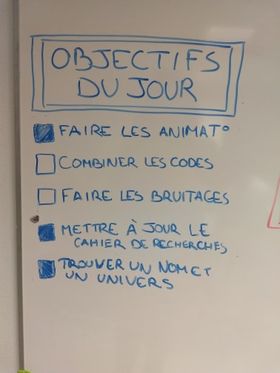 OBJECTIFS
DU JOUR
FAIRE LES ANIMAT°
COMBINER LES CODES
FAIRE LES BRUITAGES
METTRE À JOUR LE
CAHIER DE RECHERCHES
TROUVER UN NOM ET
UN UNIVERS